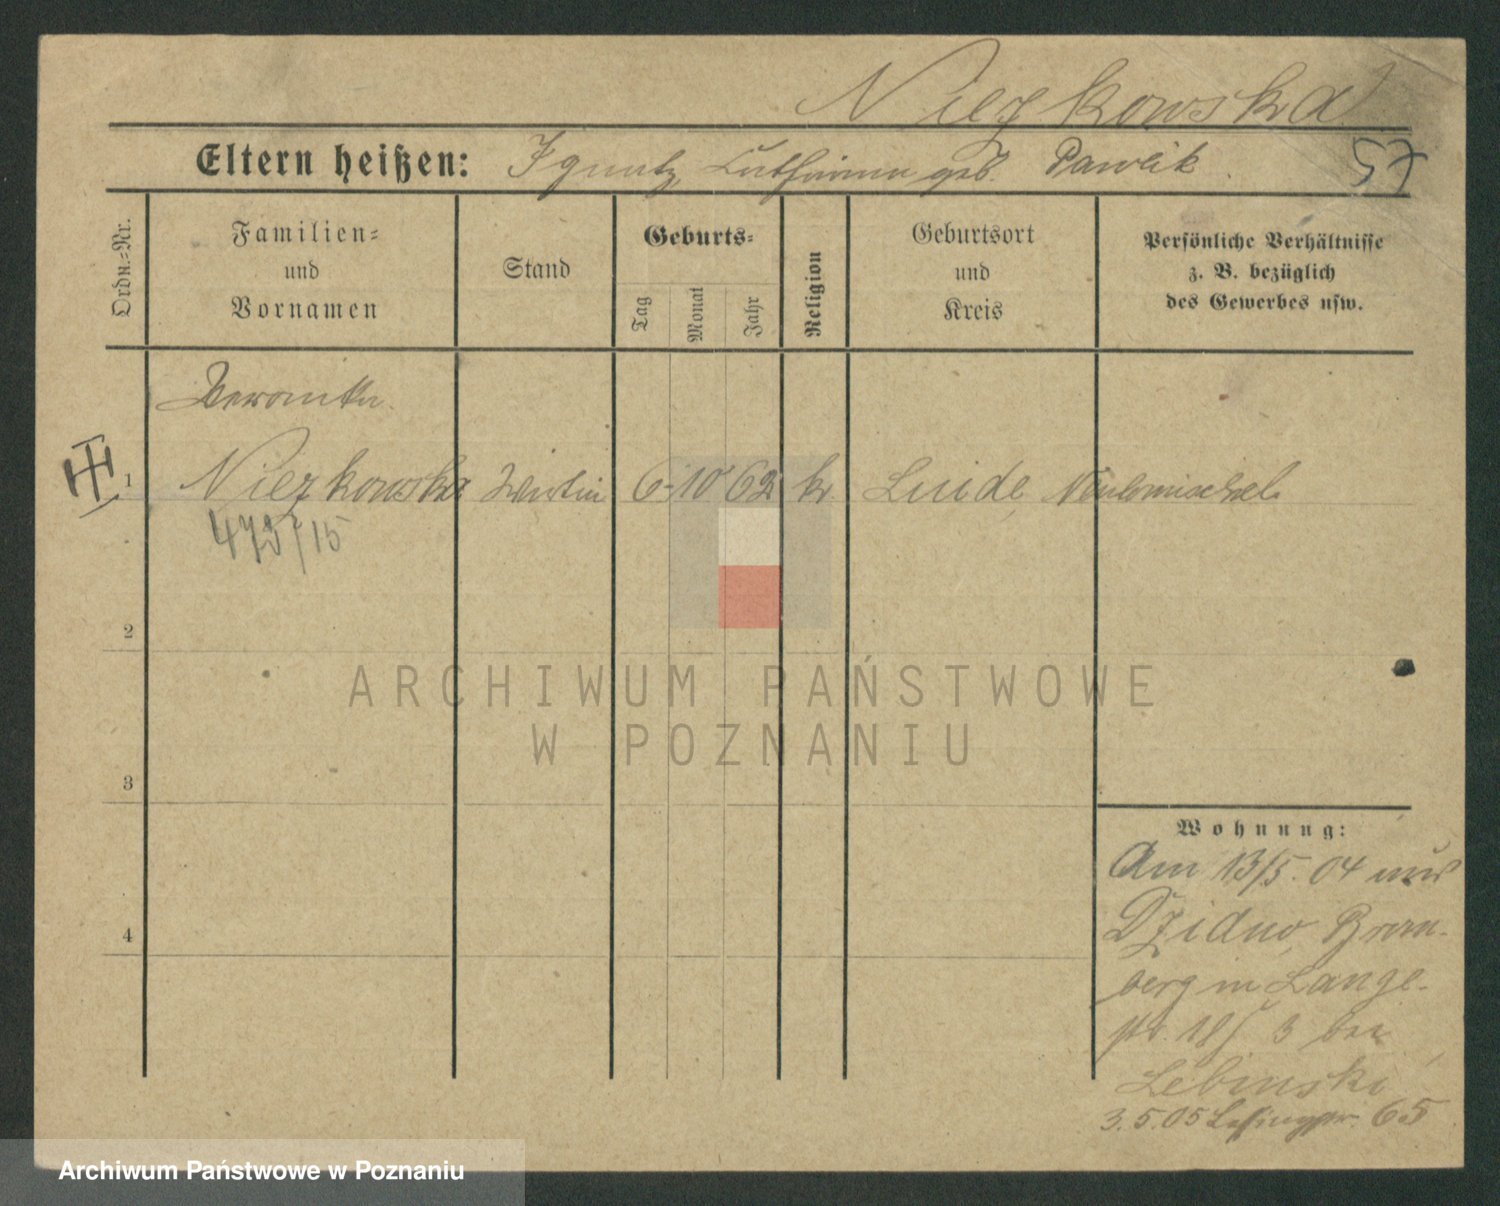 Niezkowska
Eltern heißen: Ignatz, Katharina geb. Pawlik.
57
Ordn.-Nr.
Familien-
und
Vornamen
Stand
Geburts-
Tag
Monat
Jahr
Religion
Geburtsort
und
Kreis
Persönliche Verhältnisse
z. B. bezüglich
des Gewerbes usw.
Veronika
1 Niezkowska 6. 10 62 k
473/15
2
3
4
Wohnung:
Am 13/5. 04 aus
Brom-
berg in Lange-
str. 18/ 3 bei
Lebinski
3.5.05 Lessingstr. 65
ARCHIWUM PAŃSTWOWE
W POZNANIU
Archiwum Państwowe w Poznaniu